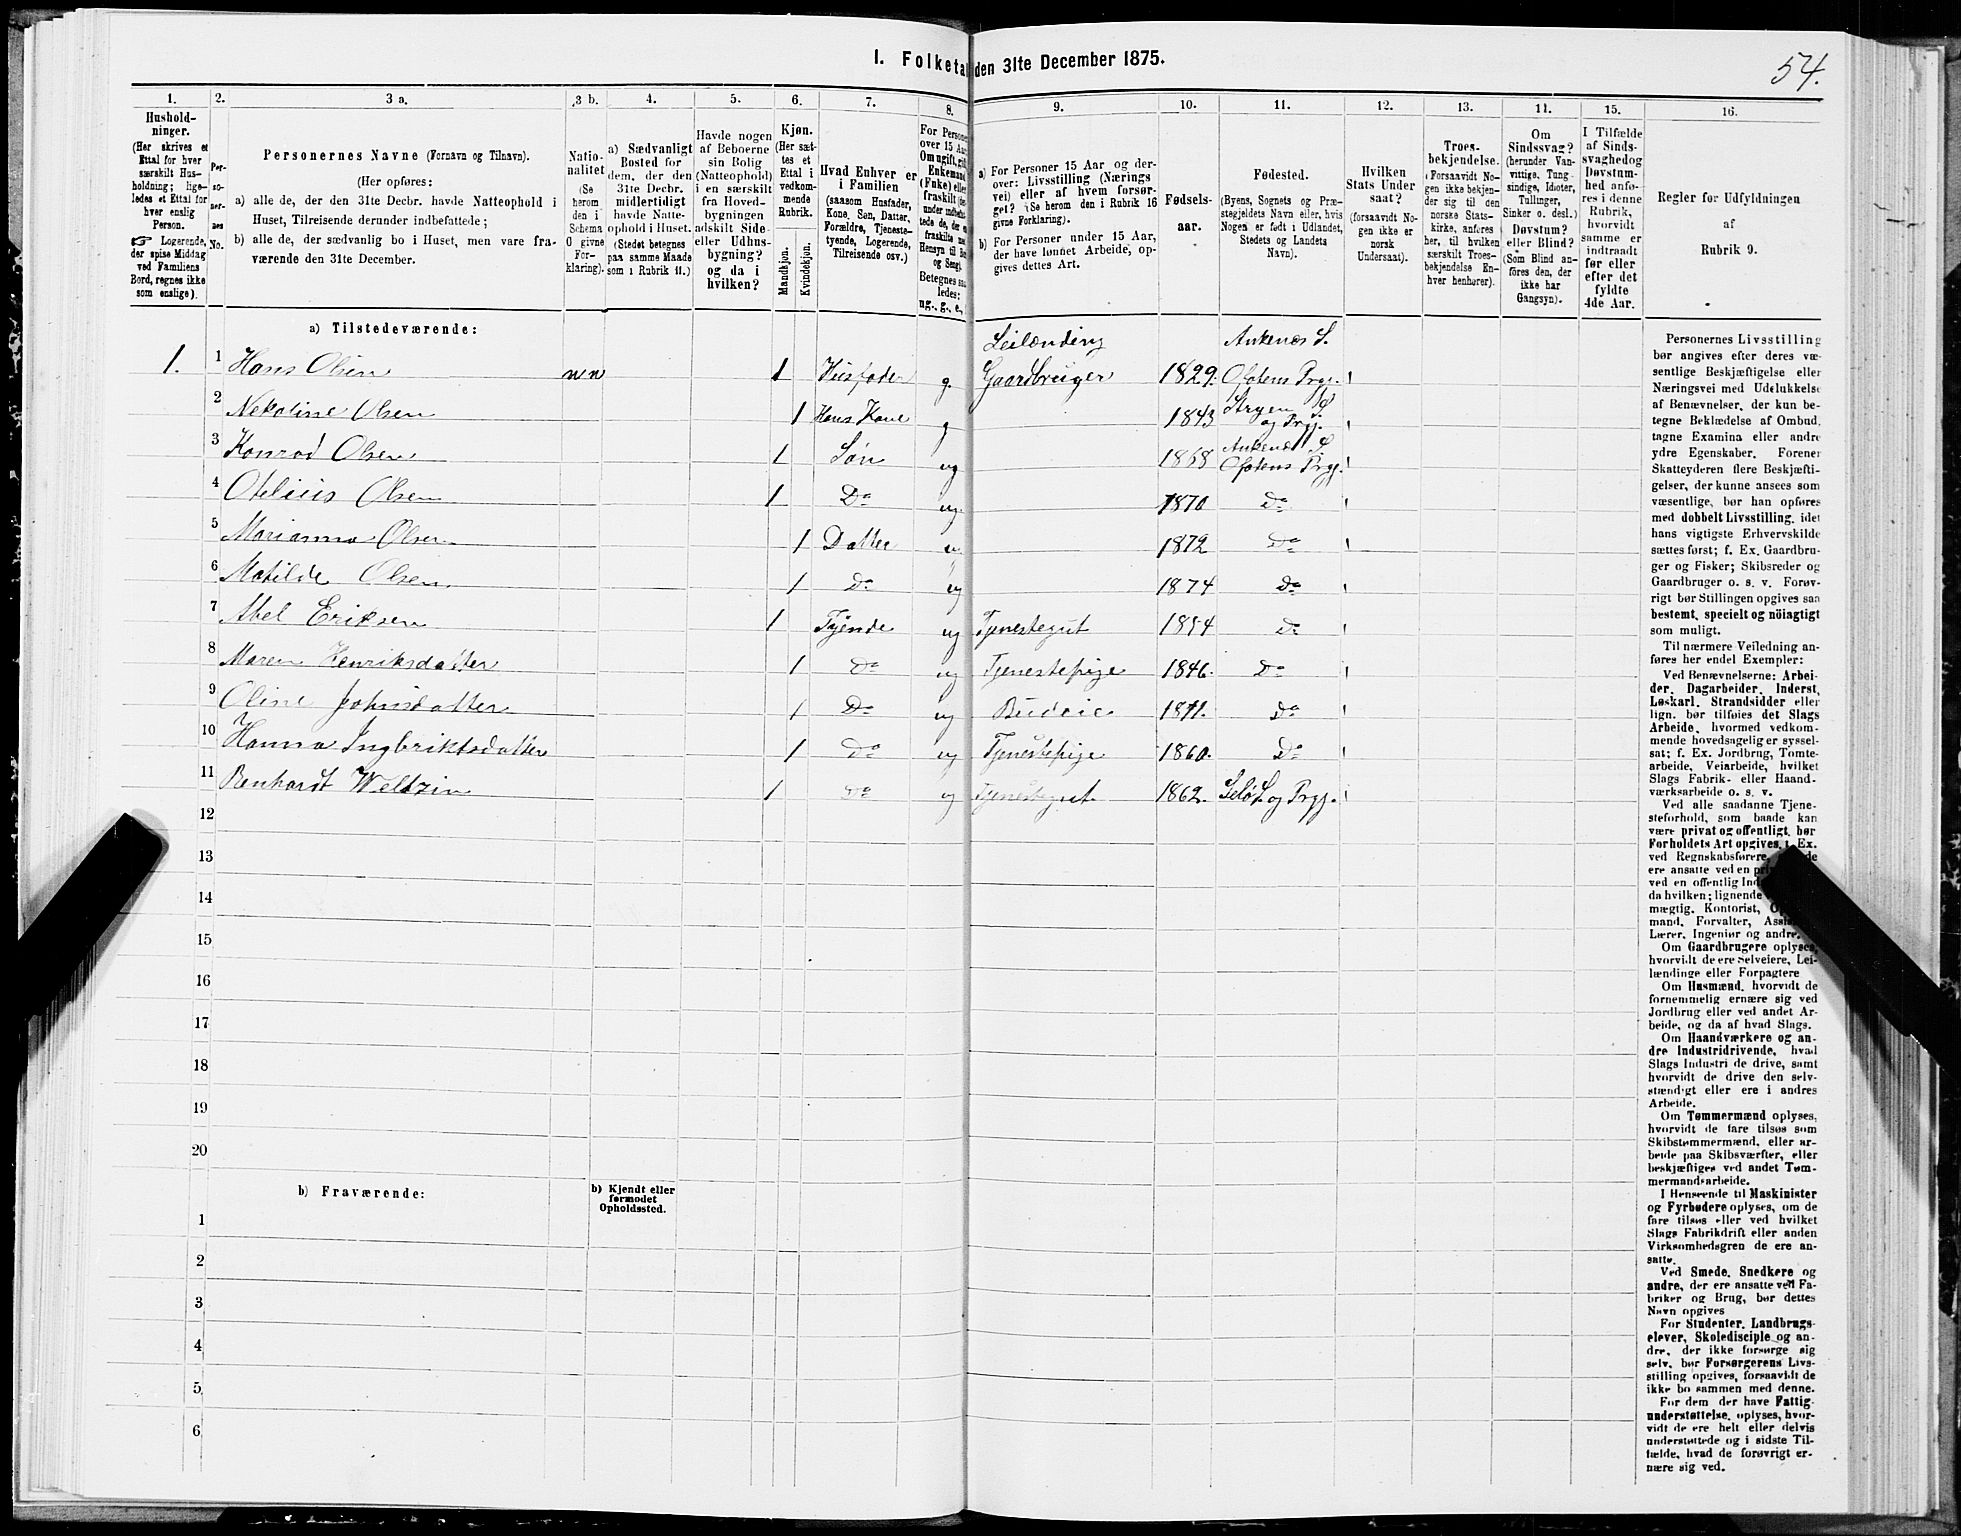 I. Folketal den 31te December 1875.
54.
1. 2. 3 a. 3 b. 4. 5. 6. 7. 8. 9. 10. 11. 12. 13. 11. 15. 16.
Hushold-
ninger.
(Her skrives et
Ettal for hver
særskilt Hus-
holdning; lige-
ledes et Ettal for
hver enslig
Person.
☞ Logerende,
der spise Middag
ved Familiens
Bord, regnes ikke
som enslige).
Per-
so-
ner-
nes
No.
Personernes Navne (Fornavn og Tilnavn).
(Her opføres:
a) alle de, der den 31te Decbr. havde Natteophold i
Huset, Tilreisende derunder indbefattede;
b) alle de, der sædvanlig bo i Huset, men vare fra-
værende den 31te December.
Natio-
nalitet
(Se
herom
den i
Schema
O givne
For-
klaring).
a) Sædvanligt
Bosted for
dem, der den
31te Decbr.
midlertidigt
havde Natte-
ophold i Huset.
(Stedet betegnes
paa samme Maade
som i Rubrik 11.)
Havde nogen
af Beboerne
sin Bolig
(Natteophold)
i en særskilt
fra Hoved-
bygningen
adskilt Side-
eller Udhus-
bygning?
og da i
hvilken?
Kjøn.
(Her sæt-
tes et
Ettal i
vedkom-
mende
Rubrik.
Mandkjøn.
Kvindekjøn.
Hvad Enhver er
i Familien
(saasom Husfader,
Kone, Søn, Datter,
Forældre, Tjeneste-
tyende, Logerende,
Tilreisende osv.)
For Persone
over 15 Aar
Om ugift, gift,
Enkemand
(Enke) eller
fraskilt
Betegnes saa
ledes:
ug., g., e.,
a) For Personer 15 Aar og der-
over: Livsstilling (Nærings
vei) eller af hvem forsør-
get? (Se herom den i Rubrik 16
givne Forklaring).
b) For Personer under 15 Aar,
der have lønnet Arbeide, op-
gives dettes Art.
Fødsels-
aar.
Fødested.
(Byens, Sognets og Præ-
stegjeldets Navn eller, hvis
Nogen er født i Udlandet,
Stedets og Landets
Navn).
Hvilken
Stats Under
saat?
(forsaavidt No-
gen ikke er
norsk
Undersaat).
Troes-
bekjendelse.
(Forsaavidt No-
gen ikke bekjen-
der sig til den
norske Stats-
kirke, anføres
her, til hvilken
særskilt Troes-
bekjendelse En-
hver henhører).
Om
Sindssvag?
(herunder Van-
vittige, Tung-
sindige, Idioter,
Tullinger,
Sinker o. desl.)
Døvstum?
eller Blind?
(Som Blind an-
føres den, der
ikke har
Gangsyn).
I Tilfælde
af Sinds-
svaghed og
Døvstum-
hed anfø-
res i denne
Rubrik,
hvorvidt
samme er
indtraadt
før eller
efter det
fyldte
4de Aar.
Regler for Udfyldningen
af
Rubrik 9.
a) Tilstedeværende:
Leilænding Ankenæs S.
1. 1 Hans Olsen nn 1 Husfader g. Gaardbruger 1829. Ofotens Prgj.
2 Nekoline Olsen 1 Hans Kone g 1843 Stryen S. og Prgj.
3 Konrad Olsen 1 Søn ug 1868 Ankenæs S. Ofotens Prgj.
4 Otelius Olsen 1 Do ug 1870 Do
5 Marianna Olsen 1 Datter u 1872 Do
6 Matilde Olsen 1 Do ug 1874 Do
7 Abel Eriksen 1 Tyende ug Tjenestegut 1854 Do
8 Maren Henriksdatter 1 Do ug Tjenestepige 1846. Do
9 Oline Johnsdatter 1 Do ug Budeie Do
10 Hanna Ingbriktsdatter 1 Do ug Tjenestepige 1860. Do
11 Benhardt Weltzin 1 Do ug Tjenestegut 1862. Selø S. og Prgj.
12
13
14
15
16
17
18
19
20
b) Fraværende:
b) Kjendt eller
formodet
Opholdssted.
1
2
3
4
5
6
Personernes Livsstilling
bør angives efter deres væ-
sentlige Beskjæftigelse eller
Næringsvei med Udelukkelse
af Benævnelser, der kun be-
tegne Beklædelse af Ombud,
tagne Examina eller andre
ydre Egenskaber. Forener
Skatteyderen flere Beskjæfti-
gelser, der kunne ansees som
væsentlige, bør han opføres
med dobbelt Livsstilling, idet
hans vigtigste Erhvervskilde
sættes først; f. Ex. Gaardbru-
ger og Fisker; Skibsreder og
Gaardbruger o. s. v. Forøv-
rigt bør Stillingen opgives saa
bestemt, specielt og nöiagtigt
som muligt.
Til nærmere Veiledning an-
føres her endel Exempler:
Ved Benævnelserne: Arbei-
der, Dagarbeider, Inderst,
Løskarl, Strandsidder eller
lign. bør tilføies det Slags
Arbeide, hvormed vedkom-
mende hovedsagelig er syssel-
sat; f. Ex. Jordbrug, Tomte-
arbeide, Veiarbeide, hvilket
Slags Fabrik- eller Haand-
værksarbeide o. s. v.
Ved alle saadanne Tjene-
steforhold, som baade kan
være privat og offentligt, bør
Forholdets Art opgives, f. Ex.
ved Regnskabsførere,
ere ansatte ved en
ved en offentlig
da hvilken; lignende
mægtig, Kontorist,
mand, Forvalter,
Lærer, Ingeniør og andre.
Om Gaardbrugere oplyses,
hvorvidt de ere Selveiere, Lei-
lændinge eller Forpagtere
Om Husmænd, hvorvidt de
fornemmelig ernære sig ved
Jordbrug eller ved andet Ar-
beide, og da af hvad Slags.
Om Haandværkere og an-
dre Industridrivende, hvad
Slags Industri de drive, samt
hvorvidt de drive den selv-
stændigt eller ere i andres
Arbeide.
Om Tømmermænd oplyses,
hvorvidt de fare tilsøs som
Skibstømmermænd, eller ar-
beide paa Skibsværfter, eller
beskjæftiges ved andet Tøm-
mermandsarbeide.
I Henseende til Maskinister
og Fyrbødere oplyses, om de
fare tilsøs eller ved hvilket
Slags Fabrikdrift eller anden
Virksomhedsgren de ere an-
satte.
Ved Smede, Snedkere og
andre, der ere ansatte ved Fa-
briker og Brug, bør dettes
Navn opgives
For Studenter, Landbrugs-
elever, Skoledisciple og an-
dre, der ikke forsørge sig
selv, bør Forsørgerens Livs-
stilling opgives, forsaavidt de
ikke bo sammen med denne.
For dem der have Fattig-
understøttelse, oplyses, hvor-
vidt de ere helt eller delvis
understøttede og i sidste Til-
fælde, hvad de forøvrigt er-
nære sig ved.